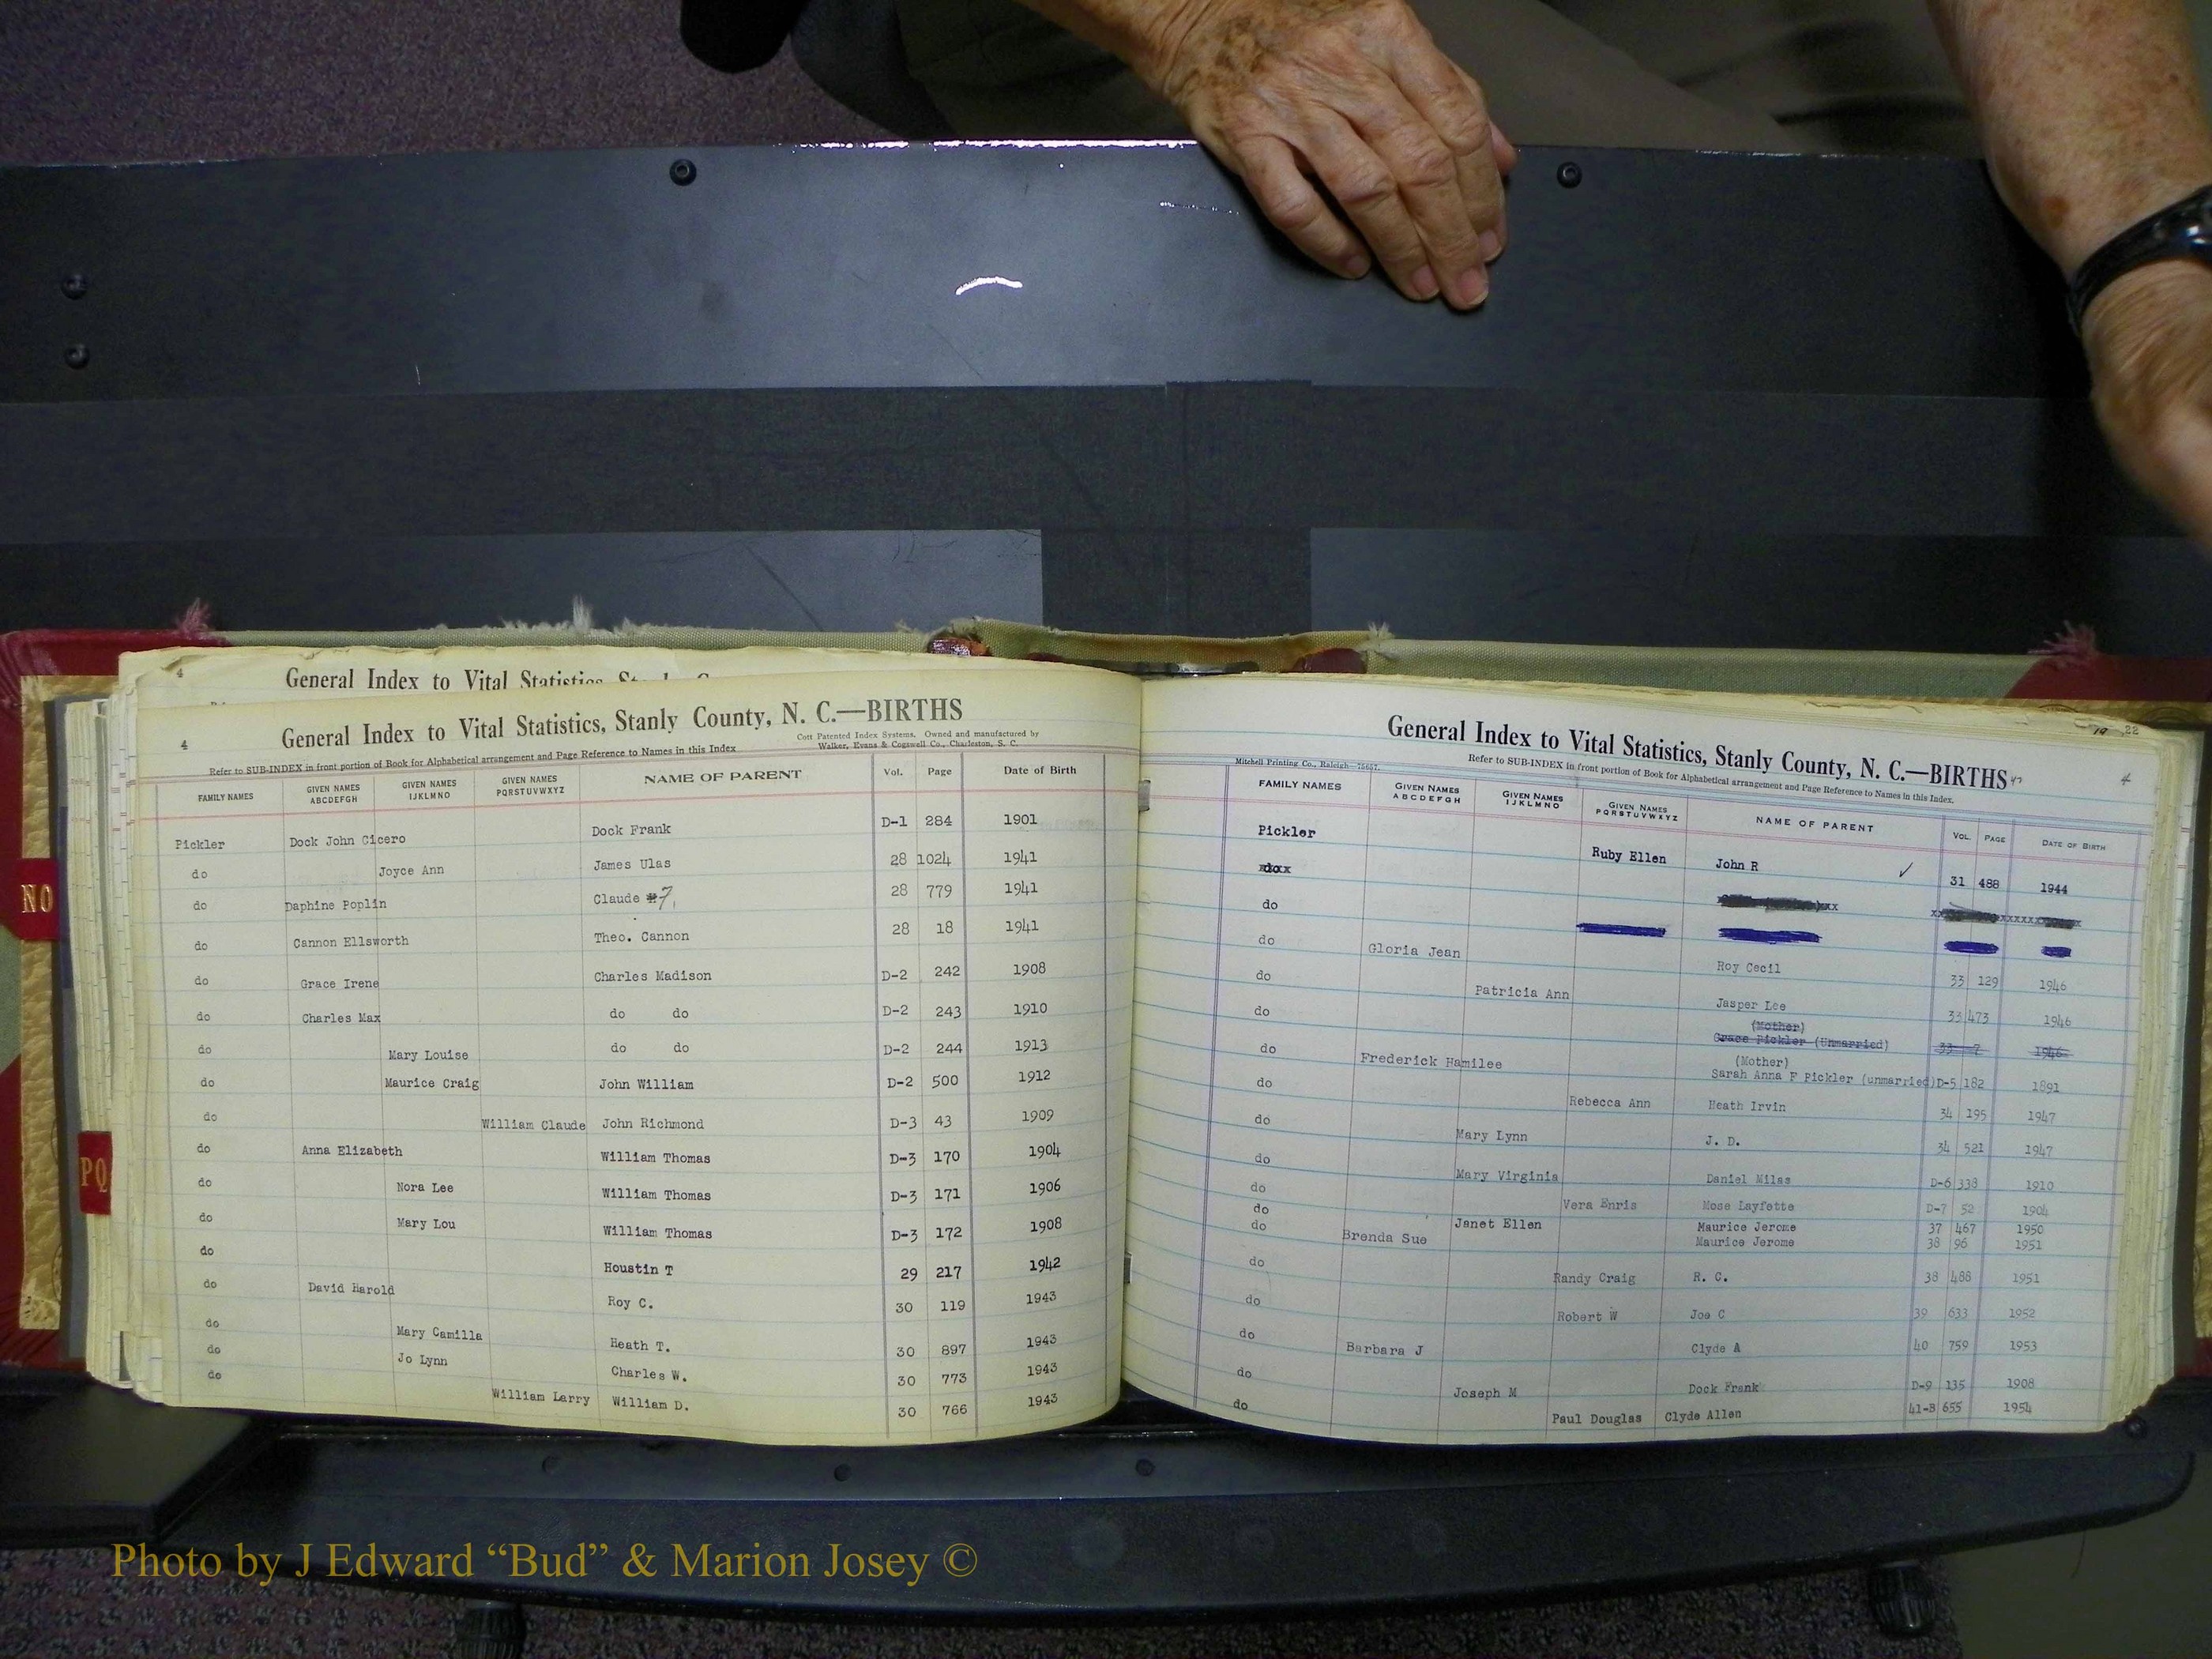 4
General Index to Vital Statistics,
4
General Index to Vital Statistics, Stanly County, N. C.—BIRTHS
Cott Patented Index Systems, Owned and manufactured by
Walker, Evans & Cogswell Co., Charleston, S. C.
Refer to SUB-INDEX in front portion of Book for Alphabetical arrangement and Page Reference to Names in this Index
FAMILY NAMES GIVEN NAMES ABCDEFGH GIVEN NAMES IJKLMNO GIVEN NAMES PQRSTUVWXYZ NAME OF PARENT Vol. Page Date of Birth
Pickler Dock John Cicero Dock Frank D-1 284 1901
do Joyce Ann James Ulas 28 1024 1941
do Daphine Poplin Claude #7, 28 779 1941
do Cannon Ellsworth Theo. Cannon 28 18 1941
do Grace Irene Charles Madison D-2 242 1908
do Charles Max do do D-2 243 1910
do Mary Louise do do D-2 244 1913
do Maurice Craig John William D-2 500 1912
do William Claude John Richmond D-3 43 1909
do Anna Elizabeth William Thomas D-3 170 1904
do Nora Lee William Thomas D-3 171 1906
do Mary Lou William Thomas D-3 172 1908
do Houstin T 29 217 1942
do David Harold Roy C. 30 119 1943
do Mary Camilla Heath T. 30 897 1943
do Jo Lynn Charles W. 30 773 1943
do William Larry William D. 30 766 1943
19 22
General Index to Vital Statistics, Stanly County, N. C.—BIRTHS
4
Mitchell Printing Co., Raleigh—75657.
Refer to SUB-INDEX in front portion of Book for Alphabetical arrangement and Page Reference to Names in this Index.
FAMILY NAMES GIVEN NAMES ABCDEFGH GIVEN NAMES IJKLMNO GIVEN NAMES PQRSTUVWXYZ NAME OF PARENT VOL. PAGE DATE OF BIRTH
Pickler Ruby Ellen John R ✓ 31 488 1944
do
do
do Gloria Jean Roy Cecil 33 129 1946
do Patricia Ann Jasper Lee 33 473 1946
do (Mother)
Grace Pickler (Unmarried) 33 7 1946
do Frederick Hamilee (Mother)
Sarah Anna F Pickler (unmarried) D-5 182 1891
do Rebecca Ann Heath Irvin 34 195 1947
do Mary Lynn J. D. 34 521 1947
do Mary Virginia Daniel Milas D-6 338 1910
do Vera Enris Mose Layfette D-7 52 1904
do Janet Ellen Maurice Jerome 37 467 1950
do Brenda Sue Maurice Jerome 38 96 1951
do Randy Craig R. C. 38 488 1951
do Robert W Joe C 39 633 1952
do Barbara J Clyde A 40 759 1953
do Joseph M Dock Frank D-9 135 1908
do Paul Douglas Clyde Allen 41-B 655 1954
NO
PQ
Photo by J Edward “Bud” & Marion Josey ©